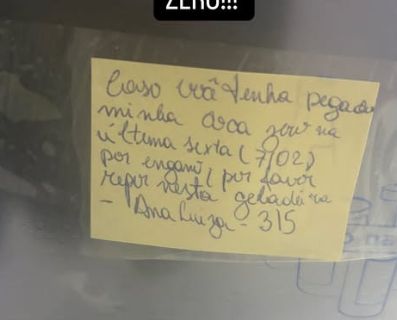 ZERO!!!
Caso você tenha pegado
minha coca zero na
última sexta (7/02)
por engano, por favor
repor nesta geladeira
- Ana Luiza - 315